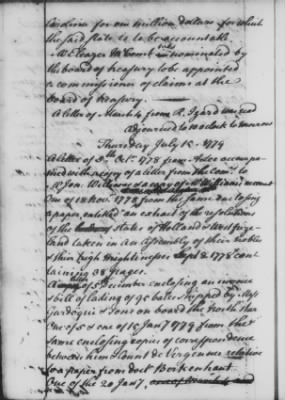 Carolina for one million dollars for which
the said state is to be accountable
Mr Eleazer McComb was nominated by
the board of treasury to be appointed
a commissioner of claims at the
board of treasury.
A letter of March 4 from R. Izard was read
Adjourned to 10 o Clock to morrow
Thursday July 15. 1779
A letter of 3th Octr. 1778 from A Lee accompa
nied with a copy of a letter from the Comrs. to
Mr Jon. Williams & a copy of Mr Williams account
One of 18 Novr. 1778 from the same enclosing
a paper, entitled an extract of the resolutions
of the States of Holland & West frize
land taken in an Assembly of their noble
& their high Mightinesses Sept 2 1778 con
taining 38 pages.
of 5 December enclosing an invoice
& bill of lading of 95 bales shipped by Messrs
Gardoqui & Sons on board the North Star
One of 5 & one of 15 Jany 1779 from the
same enclosing copies of correspondence
between him & Count de Vergennes relative
to a paper from doct Berkenhout
One of the 20 Jany.